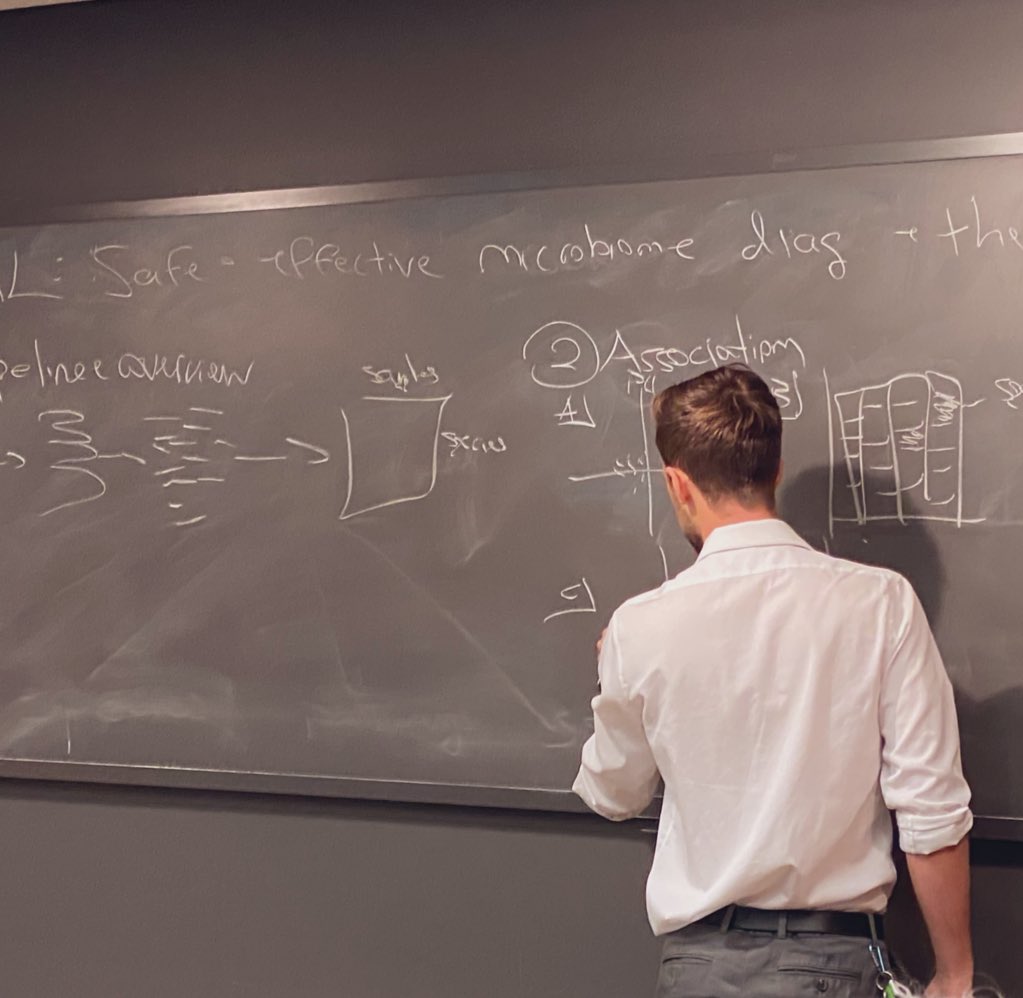 L: Safe + effective microbiome diag + the
peline overview
samples
species
② Association
A]
B]
C]